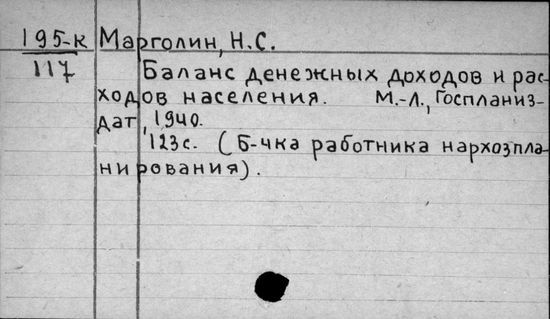 195-к Марголин, Н.С.
117 Баланс денежных доходов и рас-
ходов населения. М.-Л., Госпланиз-
дат, 1940.
123с. (Б-чка работника нархозпла-
нирования).